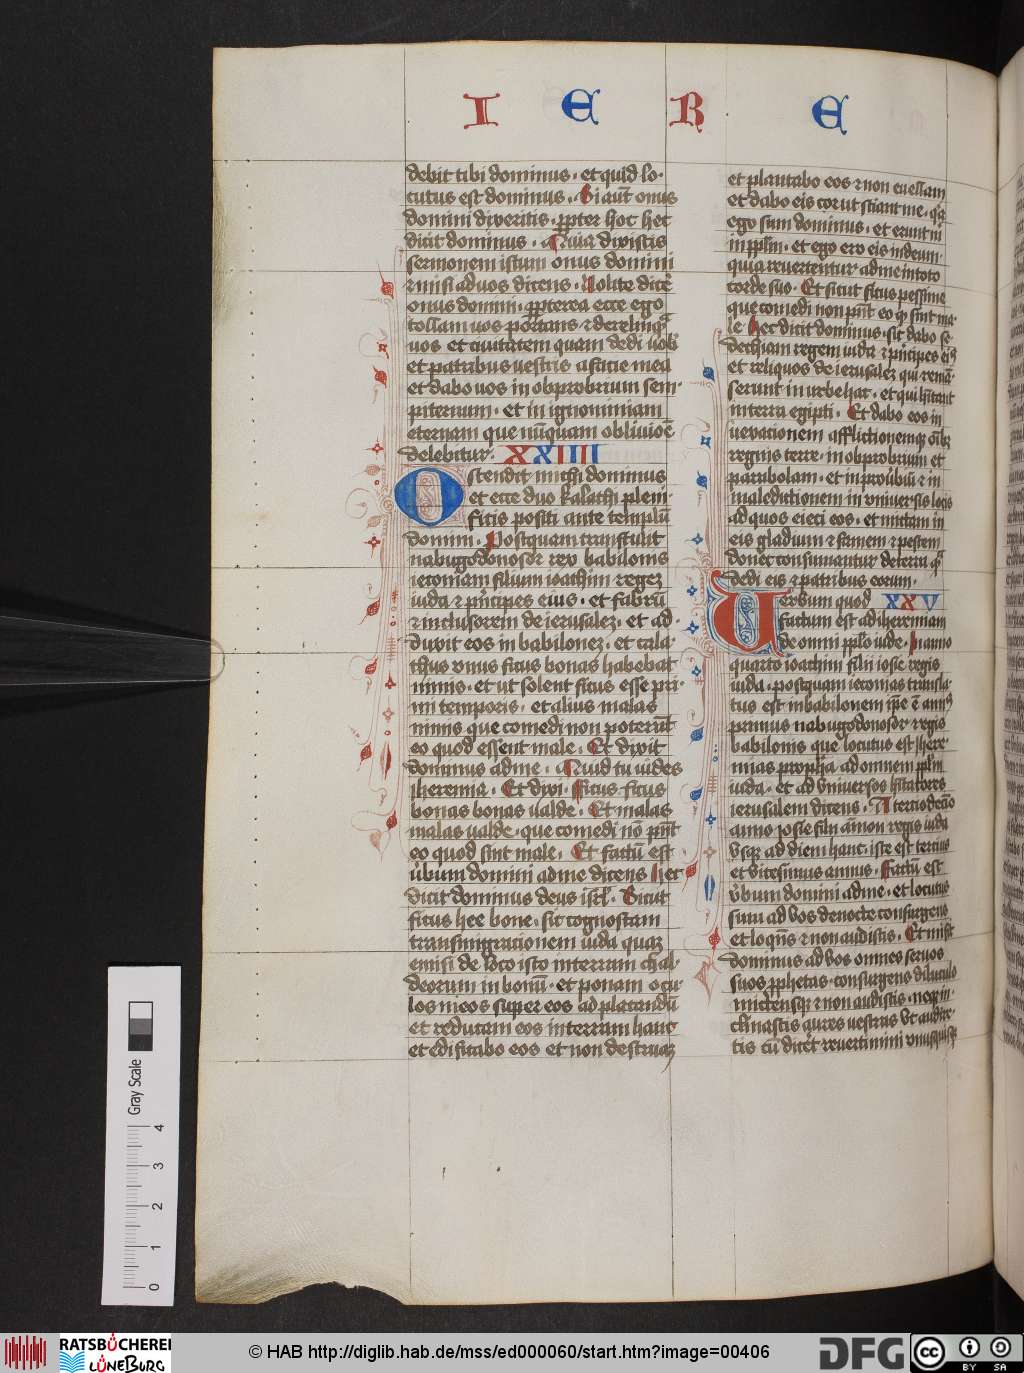 I E R E
debit tibi dominus · et quid lo-
cutus est dominus · Si aut̄ onus
domini dixeritis · ꝓpter hoc hec
dicit dominus · Quia dixistis
sermonem istum onus domini
⁊ misi ad vos dicens · Nolite dicē
onus domini · ꝓpterea ecce ego
tollam uos portans ⁊ derelinqᷓ
uos et ciuitatem quam dedi uob̄
et patribus uestris a facie mea
et dabo uos in obprobrium sem-
piternum · et in ignominiam
eternam que nūquam obliuiōe
delebitur · XXIIII
Ostendit michi dominus
et ecce duo kalathi pleni
ficis positi ante templū
domini · Postquam transtulit
nabugodonosor rex babilonis
ieconiam filium ioachim regez
iuda ⁊ prīcipes eius · et fabrū
⁊ inclusorem de ierusalez · et ad-
duxit eos in babilonez · et cala-
thus vnus ficus bonas habebat
nimis · et ut solent ficus esse pri-
mi temporis · et alius malas
nimis que comedi non poterāt
eo quod essent male · Et dixit
dominus ad me · Quid tu uides
jheremia · Et dixi · Ficus · ficus
bonas bonas ualde · Et malas
malas ualde · que comedi nō pn̄t
eo quod sint male · Et factū est
v̄bum domini ad me dicens hec
dicit dominus deus isrl̄ · Sicut
ficus hee bone · sic cognoscam
transmigrationem iuda quaz
emisi de loco isto in terram chal-
deorum in bonū · et ponam ocu-
los meos super eos ad placandū
et reducam eos in terram hanc
et edificabo eos et non destruaz
et plantabo eos ⁊ non euellam
et dabo eis cor ut sciant me · qᷓ
ego sum dominus · et erunt m̄
in ppl̄m · et ego ero eis in deum ·
quia reuertentur ad me in toto
corde suo · Et sicut ficus pessime
que comedi non pn̄t eo ꝙ sint ma-
le hec dicit dominus · sic dabo se-
dechiam regem iuda ⁊ prīcipes eiꝰ
et reliquos de ierusalez qui remā-
serunt in urbe hac · et qui hītant
in terra egipti · Et dabo eos in
uexationem afflictionemqꝫ oīb̄
regnis terre · in obprobrium et
parabolam · et in prouv̄biū ⁊ in
maledictionem in vniuersis locis
ad quos eieci eos · et mittam in
eis gladium ⁊ famem ⁊ pestem
donec consumantur de terra qᷓ
dedi eis ⁊ patribus eorum ·
Uerbum quod XXV
factum est ad iheremiam
de omni ppl̄o iude · In anno
quarto ioachim filii iosie regis
iuda · postquam ieconias transla-
tus est in babilonem ip̄e ē annꝰ
primus nabugodonosor ⁊ regis
babilonis que locutus est jhere-
mias propha ad omnem ppl̄m
iuda · et ad vniuersos hītatores
ierusalem dicens · A terciodecīo
anno josie filii āmon regis iuda
vsqꝫ ad diem hanc · iste est tercius
et vicesimus annus · Factū est
v̄bum domini ad me · et locutus
sum ad vos de nocte consurgens
et loquēs ⁊ non audistis · Et misit
dominus ad vos omnes seruos
suos ꝓphetas · consurgens diluculo
mittensqꝫ ⁊ non audistis · neqꝫ in-
clinastis aures uestras vt audire-
tis cū dicēt reuertimini vnusquisqꝫ
Gray Scale
0 1 2 3 4
RATSBÜCHEREI
LÜNEBURG
© HAB http://diglib.hab.de/mss/ed000060/start.htm?image=00406
DFG
cc BY SA